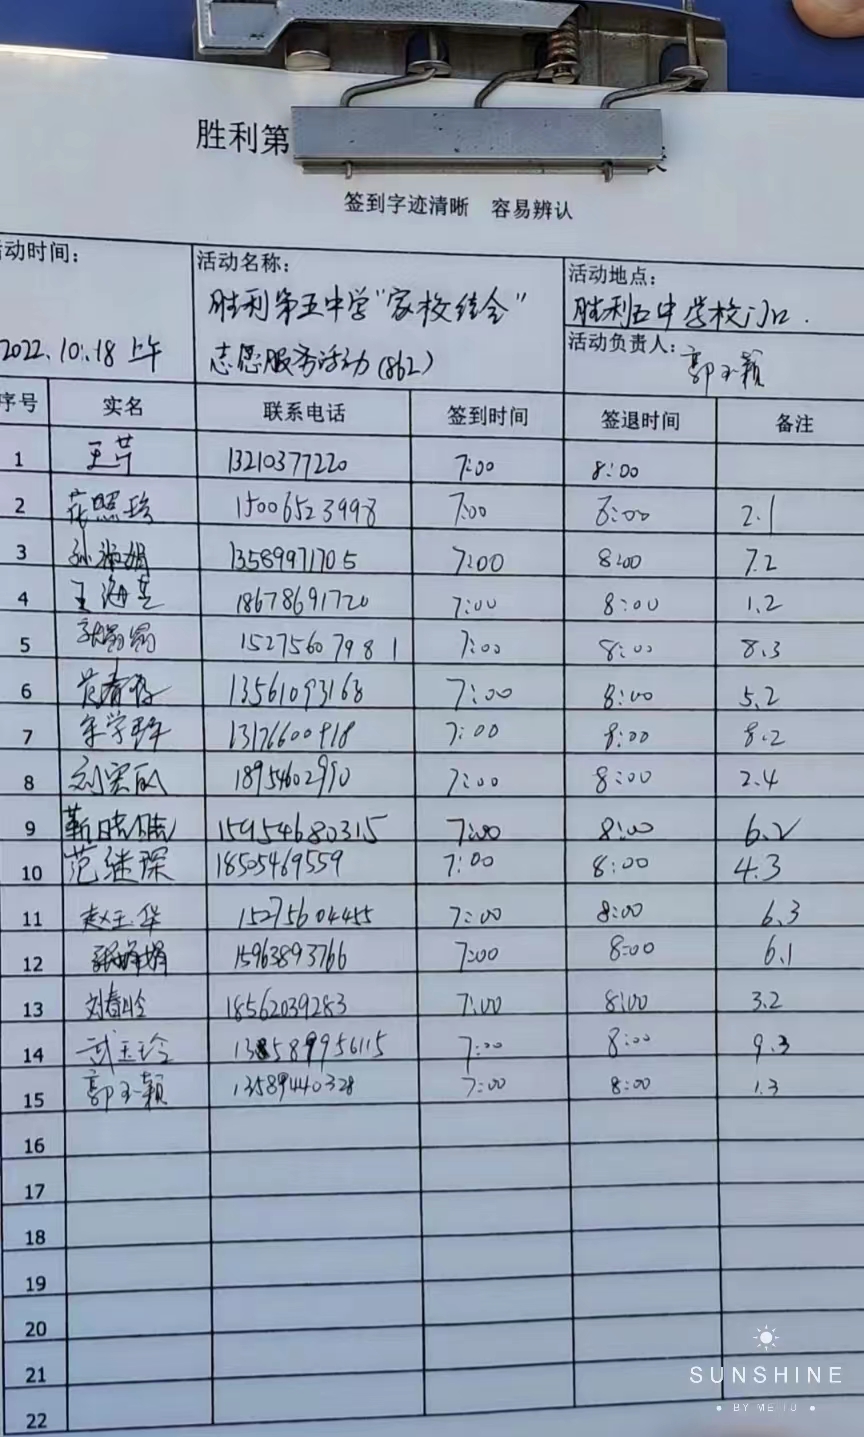 胜利第
签到字迹清晰 容易辨认
动时间:
2022.10.18 上午
活动名称:
胜利第五中学"家校结合"
志愿服务活动(862)
活动地点:
胜利五中学校门口.
活动负责人:
郭玉颖
序号 实名 联系电话 签到时间 签退时间 备注
1 王芹 13210377220 7:00 8:00
2 15006523998 7:00 8:00 2.1
3 13589971705 7:00 8:00 7.2
4 王海芝 18678691720 7:00 8:00 1.2
5 15275607981 7:00 8:00 8.3
6 13561093168 7:00 8:00 5.2
7 7:00 8:00 8.2
8 7:00 8:00 2.4
9 靳晓陆 15954680315 7:00 8:00 6.2
10 范继琛 18505469559 7:00 8:00 4.3
11 赵玉华 15275604455 7:00 8:00 6.3
12 15963893766 7:00 8:00 6.1
13 刘春玲 18562039283 7:00 8:00 3.2
14 武玉玲 13589956115 7:00 8:00 9.3
15 郭玉颖 13589440328 7:00 8:00 1.3
16
17
18
19
20
21
22
SUNSHINE
BY MEITU